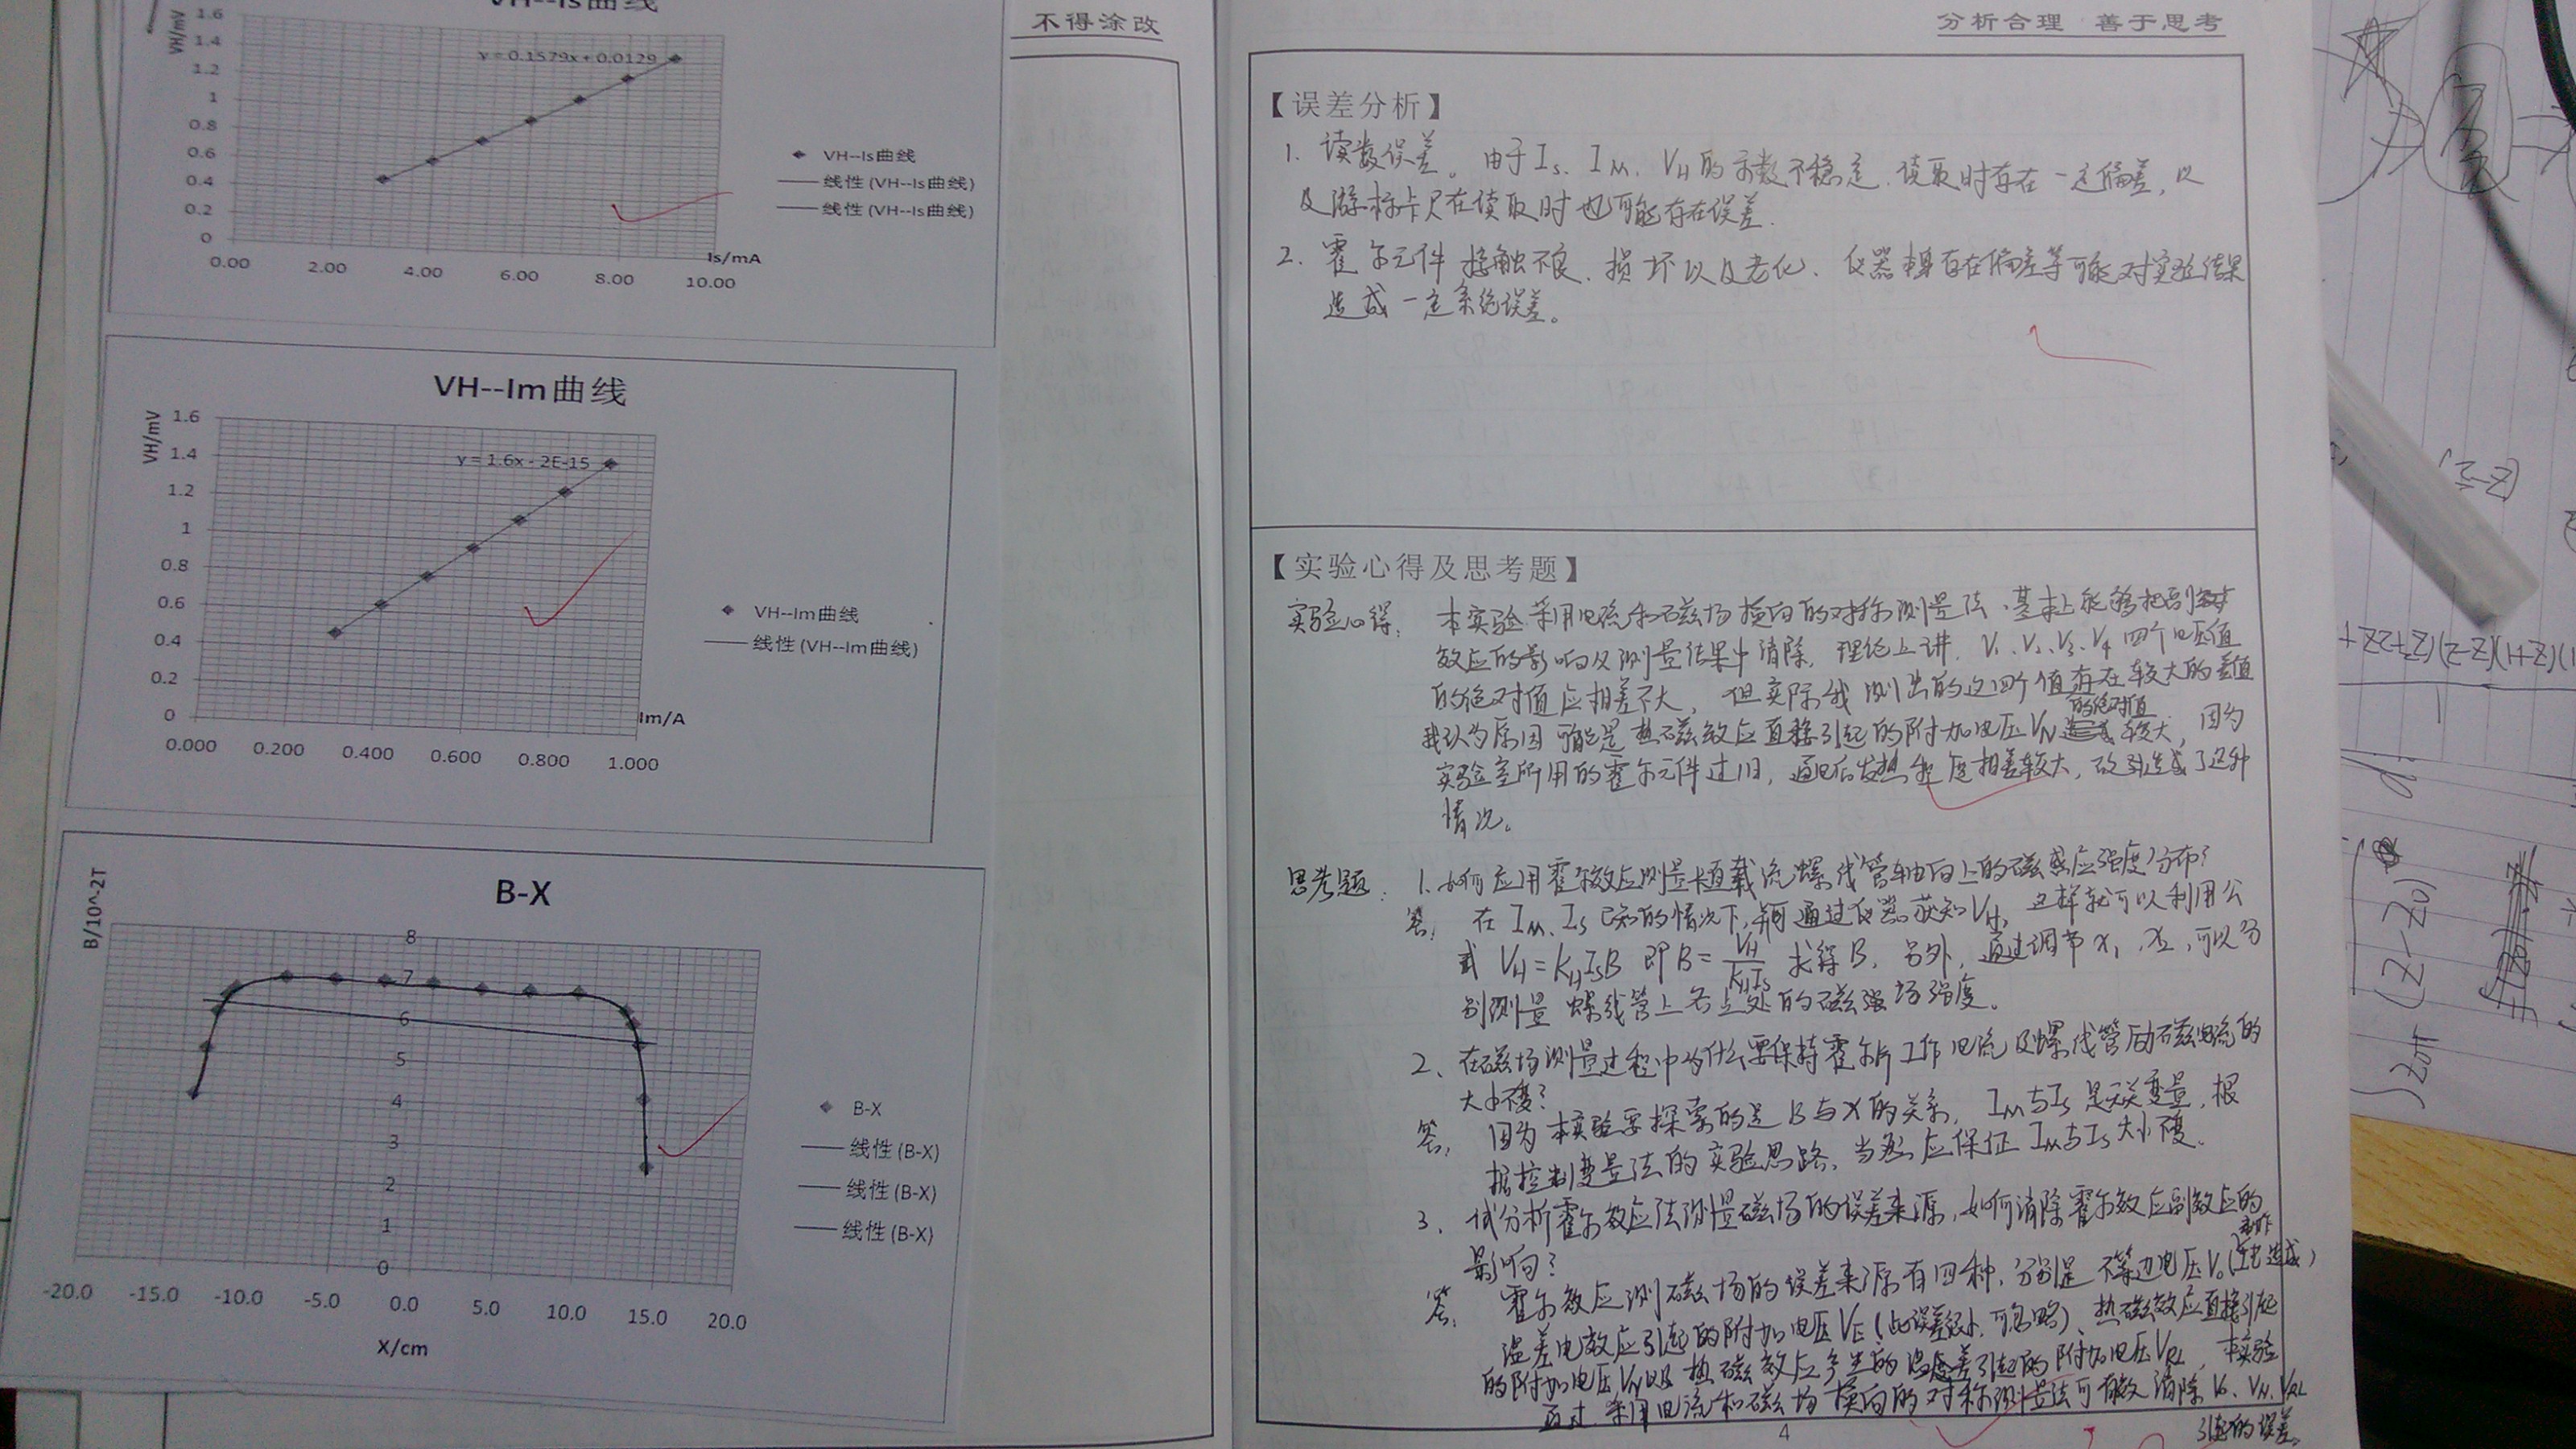 VH--Is曲线
VH/mV
1.6
1.4
1.2
1
0.8
0.6
0.4
0.2
0
y = 0.1579x + 0.0129
VH--Is曲线
线性 (VH--Is曲线)
线性 (VH--Is曲线)
Is/mA
0.00 2.00 4.00 6.00 8.00 10.00
VH--Im曲线
VH/mV
1.6
1.4
1.2
1
0.8
0.6
0.4
0.2
0
y = 1.6x - 2E-15
VH--Im曲线
线性 (VH--Im曲线)
Im/A
0.000 0.200 0.400 0.600 0.800 1.000
B-X
B/10^-2T
8
7
6
5
4
3
2
1
0
B-X
线性 (B-X)
线性 (B-X)
线性 (B-X)
-20.0 -15.0 -10.0 -5.0 0.0 5.0 10.0 15.0 20.0
X/cm
不得涂改
分析合理 善于思考
【误差分析】
1. 读数误差。由于Is、IM、VH的示数不稳定,读取时存在一定偏差,以
及游标卡尺在读取时也可能存在误差.
2. 霍尔元件接触不良、损坏以及老化、仪器本身存在偏差等可能对实验结果
造成一定系统误差。
【实验心得及思考题】
实验心得: 本实验采用电流和磁场换向的对称测量法,基本上能够把副
效应的影响从测量结果中消除,理论上讲,V1、V2、V3、V4四个电压值
的绝对值应相差不大,但实际我测出的这四个值存在较大的差值
我认为原因可能是热磁效应直接引起的附加电压VN的绝对值较大,因为
实验室所用的霍尔元件过旧,通电后发热程度相差较大,故造成了这种
情况。
思考题: 1. 如何应用霍尔效应测量长直载流螺线管轴向上的磁感应强度分布?
答: 在IM、Is已知的情况下,可通过仪器获知VH,这样就可以利用公
式 VH=KHIsB 即B=VH/KHIs 求得B,另外,通过调节x1、x2,可以分
别测量螺线管上各点处的磁场强度。
2、在磁场测量过程中为什么要保持霍尔片工作电流及螺线管励磁电流的
大小不变?
答: 因为本实验要探索的是B与X的关系,IM与Is是无关变量,根
据控制变量法的实验思路,当然应保证IM与Is大小不变。
3、试分析霍尔效应法测量磁场的误差来源,如何消除霍尔效应副效应的
影响?
答: 霍尔效应测磁场的误差来源有四种,分别是不等边电压V0(造成)
温差电效应引起的附加电压VE(此误差很小,可忽略)、热磁效应直接引起
的附加电压VN以及热磁效应产生的温差引起的附加电压VRL,本实验
采用电流和磁场换向的对称测量法可有效消除V0、VN、VRL
引起的误差。
4